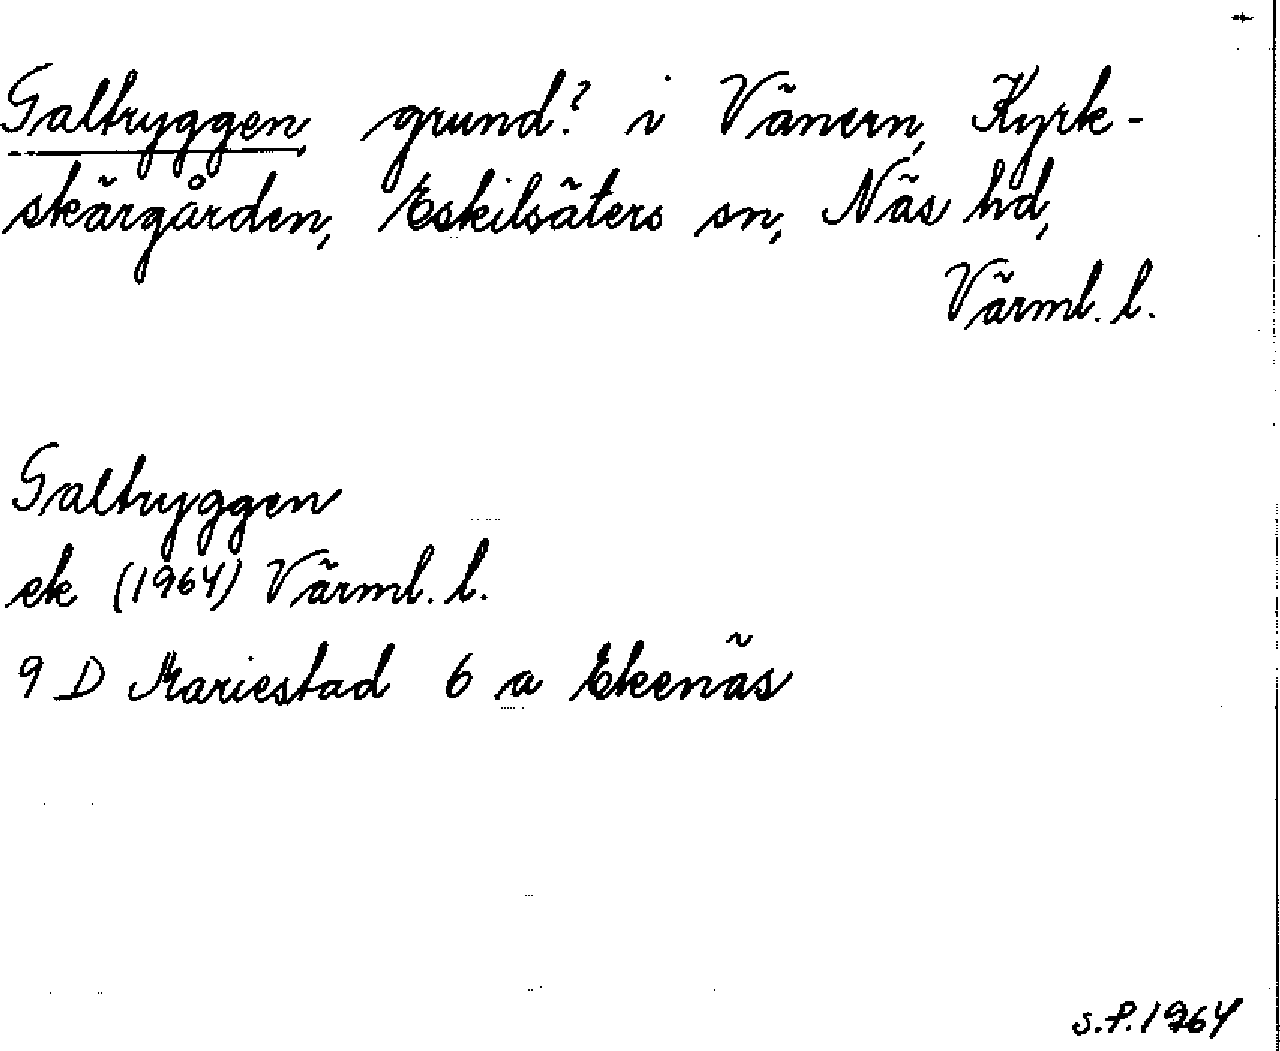 Galtryggen, grund? i Vänern, Kyrk-
skärgården, Eskilsäters sn, Näs hd,
Värml. l.
Galtryggen
ek (1964) Värml. l.
9 D Mariestad 6 a Ekenäs
S.P. 1964